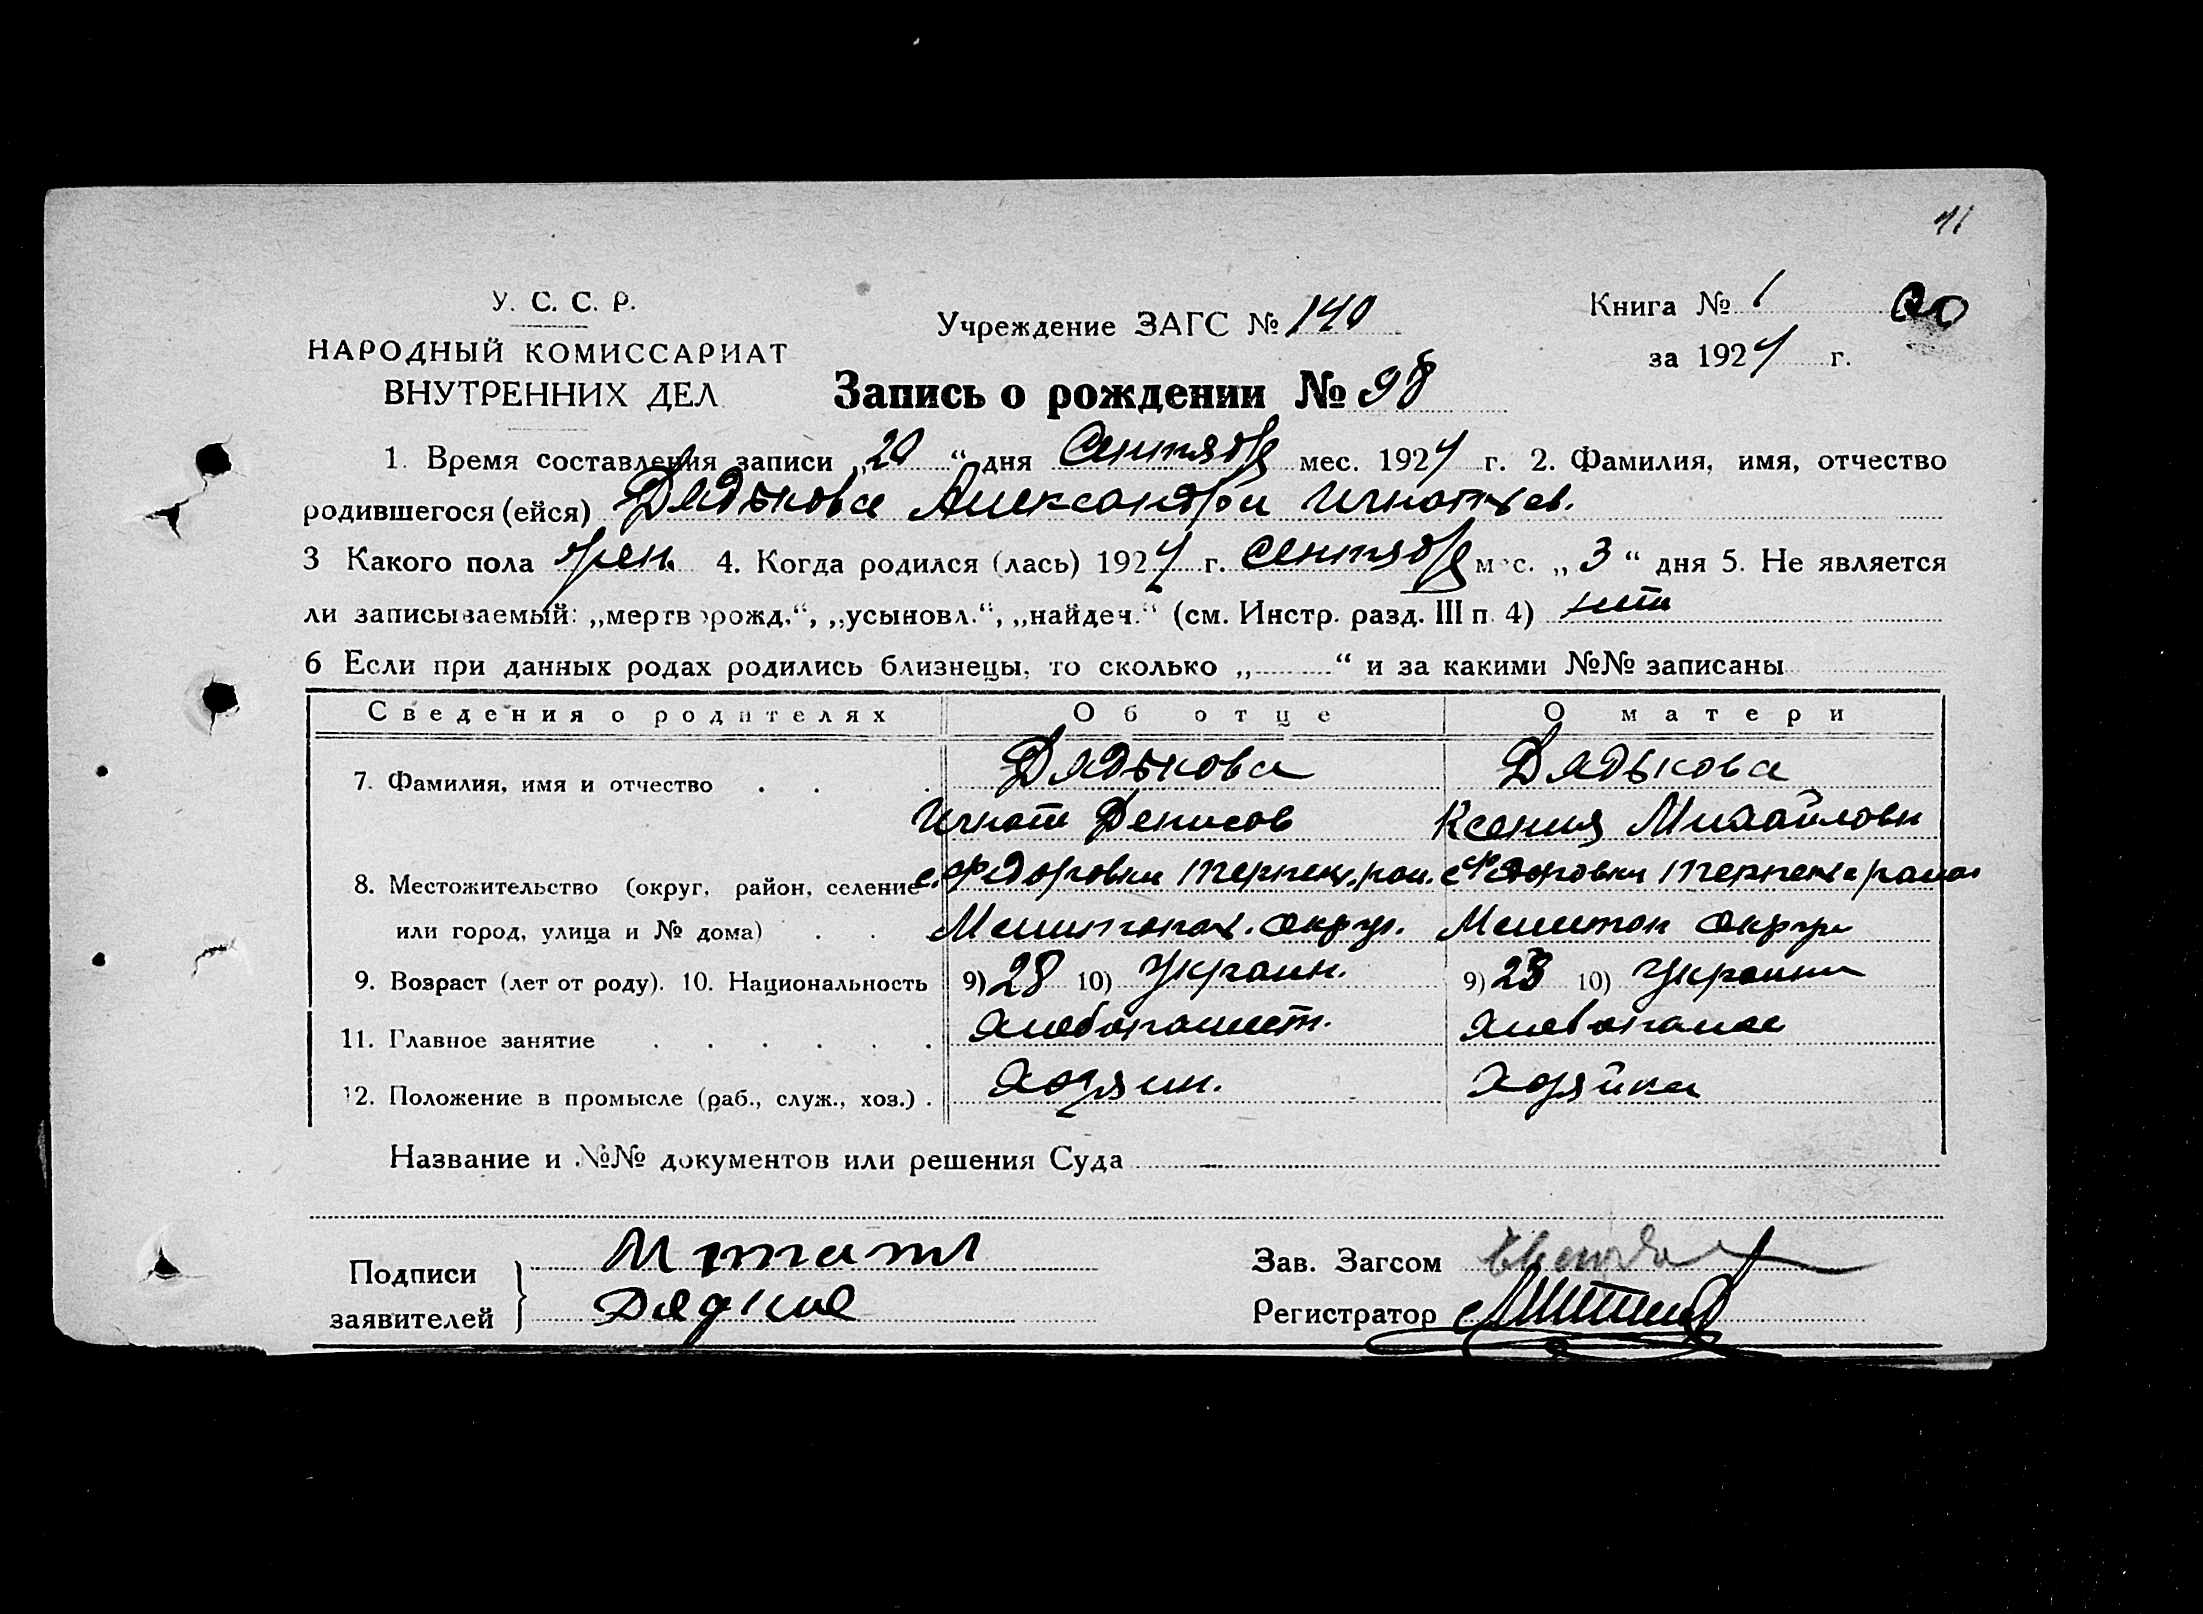 11
У. С. С. Р.
НАРОДНЫЙ КОМИССАРИАТ
ВНУТРЕННИХ ДЕЛ
Учреждение ЗАГС № 140
Книга № 1
за 1924 г.
Запись о рождении № 98
1. Время составления записи „20“ дня Сентября мес. 1924 г. 2. Фамилия, имя, отчество
родившегося (ейся) Дядькова Александра Игнатьев.
3 Какого пола жен. 4. Когда родился (лась) 1924 г. Сентября мес. „3“ дня 5. Не является
ли записываемый: „мертворожд.“, „усыновл.“, „найдеч.“ (см. Инстр. разд. III п. 4) нет
6 Если при данных родах родились близнецы, то сколько „ “ и за какими №№ записаны
Сведения о родителях Об отце О матери
7. Фамилия, имя и отчество Дядькова Дядькова
Игнат Денисов Ксения Михайловн
8. Местожительство (округ, район, селение с. Федоровки Терпен. рай. с Федоровки Терпен
или город, улица и № дома) Мелитопол. округ. Мелитоп округ
9. Возраст (лет от роду). 10. Национальность 9) 28 10) Украин. 9) 28 10) Украинк
11. Главное занятие Хлебопашест. Хлебопаш
12. Положение в промысле (раб., служ., хоз.) Хозяин. Хозяйка
Название и №№ документов или решения Суда
Подписи
заявителей
Зав. Загсом
Регистратор